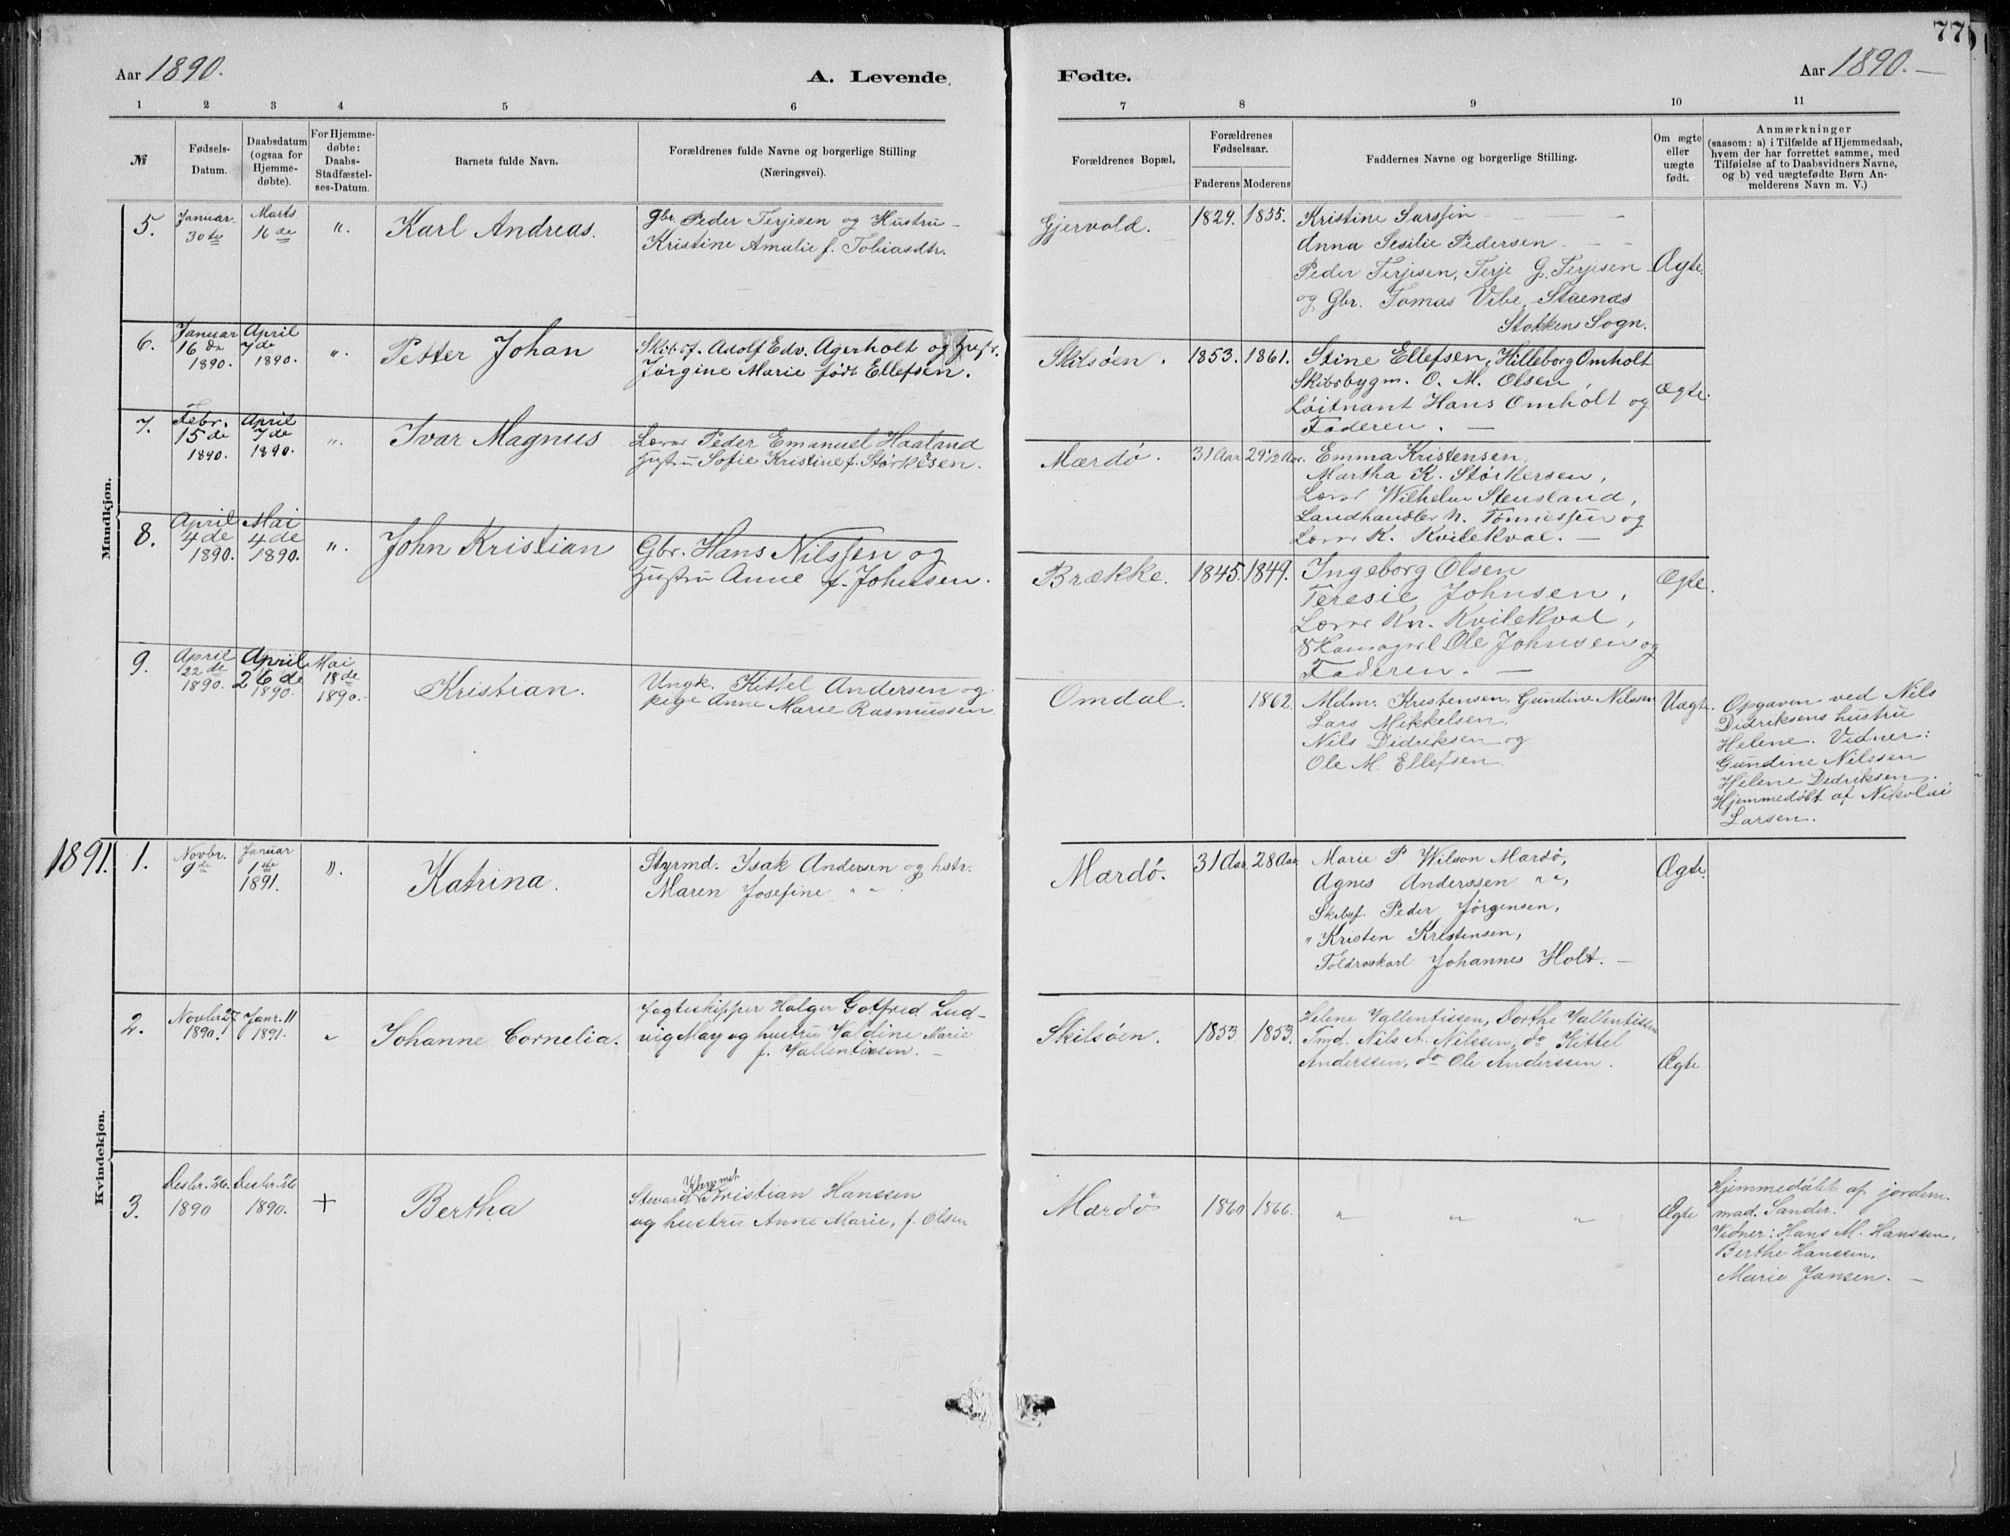 77
Aar 1890.
A. Levende
Fødte.
Aar 1890. —
1 2 3 4 5 6 7 8 9 10 11
№
Fødsels-
Datum.
Daabsdatum
(ogsaa for
Hjemme-
døbte).
For Hjemme-
døbte:
Daabs-
Stadfæstel-
ses-Datum.
Barnets fulde Navn.
Forældrenes fulde Navne og borgerlige Stilling
(Næringsvei).
Forældrenes Bopæl.
Forældrenes
Fødselsaar.
Faderens Moderens
Faddernes Navne og borgerlige Stilling.
Om ægte
eller
uægte
født.
Anmærkninger
(saasom: a) i Tilfælde af Hjemmedaab,
hvem der har forrettet samme, med
Tilføielse af to Daabsvidners Navne,
og b) ved uægtefødte Børn An-
melderens Navn m. V.)
Mandkjøn.
5.
Januar
30te
Marts
16de
".
Karl Andreas.
Gbr. Peder Terjesen og Hustru –
Kristine Amalie f. Tobiasdtr.
Gjervold.
1829. 1855.
Kristine
Anna Sesilie Pedersen
Peder Terjesen, Terje G. Terjesen
og Gbr. Tomas Vibe, Stuenæs
Stokkens Sogn.
Ægte.
6.
Januar
16de
1890.
April
7de
1890.
".
Petter Johan
Skibsf. Adolf Edv. Agerholt og
Jørgine Marie født Ellefsen.
Skilsøen.
1853. 1861.
Stine Ellefsen, Hilleborg Omholt
Skibsbygm. O. M. Olsen
Løitnant Hans Omholt og
Faderen. —
Ægte.
7.
Febr.
15de
1890.
April
7de
1890.
".
Ivar Magnus
Lærer Peder Emanuel Haaland
Hustru Sofie Kristine f. Størkersen.
Mærdø.
31 Aar 29 1/2 Aar.
Emma Kristensen,
Martha K. Størkersen,
Lærer Wilhelm Stensland,
Landhandler N. Tønnessen og
Lærer K. Kvilekval. —
8.
April
4de
1890.
Mai
4de
1890.
".
John Kristian
Gbr. Hans Nilssen og
Hustru Anne f. Johnsen.
Brække.
1845. 1849.
Ingeborg Olsen
Teresie Johnsen,
Lærer Kn. Kvilekval,
Ole Johnsen og
Faderen. —
Ægte.
9.
April
22de
1890.
April
26de
1890.
Mai
18de
1890.
Kristian.
Ungk. Kittel Andersen og
pige Anne Marie Rasmussen
Omdal.
1862.
Mdm. Kristensen, Gundine Nilssen
Lars Mikkelsen,
Nils Didriksen og
Ole M. Ellefsen
Uægte.
Opgaven ved Nils
Didriksens hustru
Helene. Vidner:
Gundine Nilssen
Helene Didriksen.
Hjemmedøbt af Nikolai
Larsen.
1891.
Kvindekjøn.
1.
Novbr.
9de
Januar
1de
1891.
".
Katrina.
Styrmd. Isak Andersen og hstr.
Maren Josefine " "
Mærdø.
31 Aar 28 Aar
Marie P. Wilson Mærdø,
Agnes Anderssen " ",
Skibsf. Peder Jørgensen,
" Kristen Kristensen,
Toldroskarl Johannes Holt. —
Ægte.
2.
Novbr. 27
1890.
Janr. 11
1891.
"
Johanne Cornelia.
Jagteskipper Holger Gotfred Lud-
vig May og hustru Valdine Marie
f. Vallentinsen. —
Skilsøen.
1853 1853.
Helene Vallentissen, Dorthe Vallentissen
Tmd. Nils A. Nilssen, do Kittel
Anderssen, do Ole Anderssen.
Ægte
3.
Desbr. 26.
1890
Desbr. 26
1890.
+
Bertha
Stevard Klemmet Kristian Hanssen
og hustru Anne Marie, f. Olsen
Mærdø
1860 1866.
" " "
Ægte
Hjemmedøbt af jordem.
mad. Sander.
Vidner: Hans M. Hanssen,
Berthe Hanssen,
Marie Jansen. —